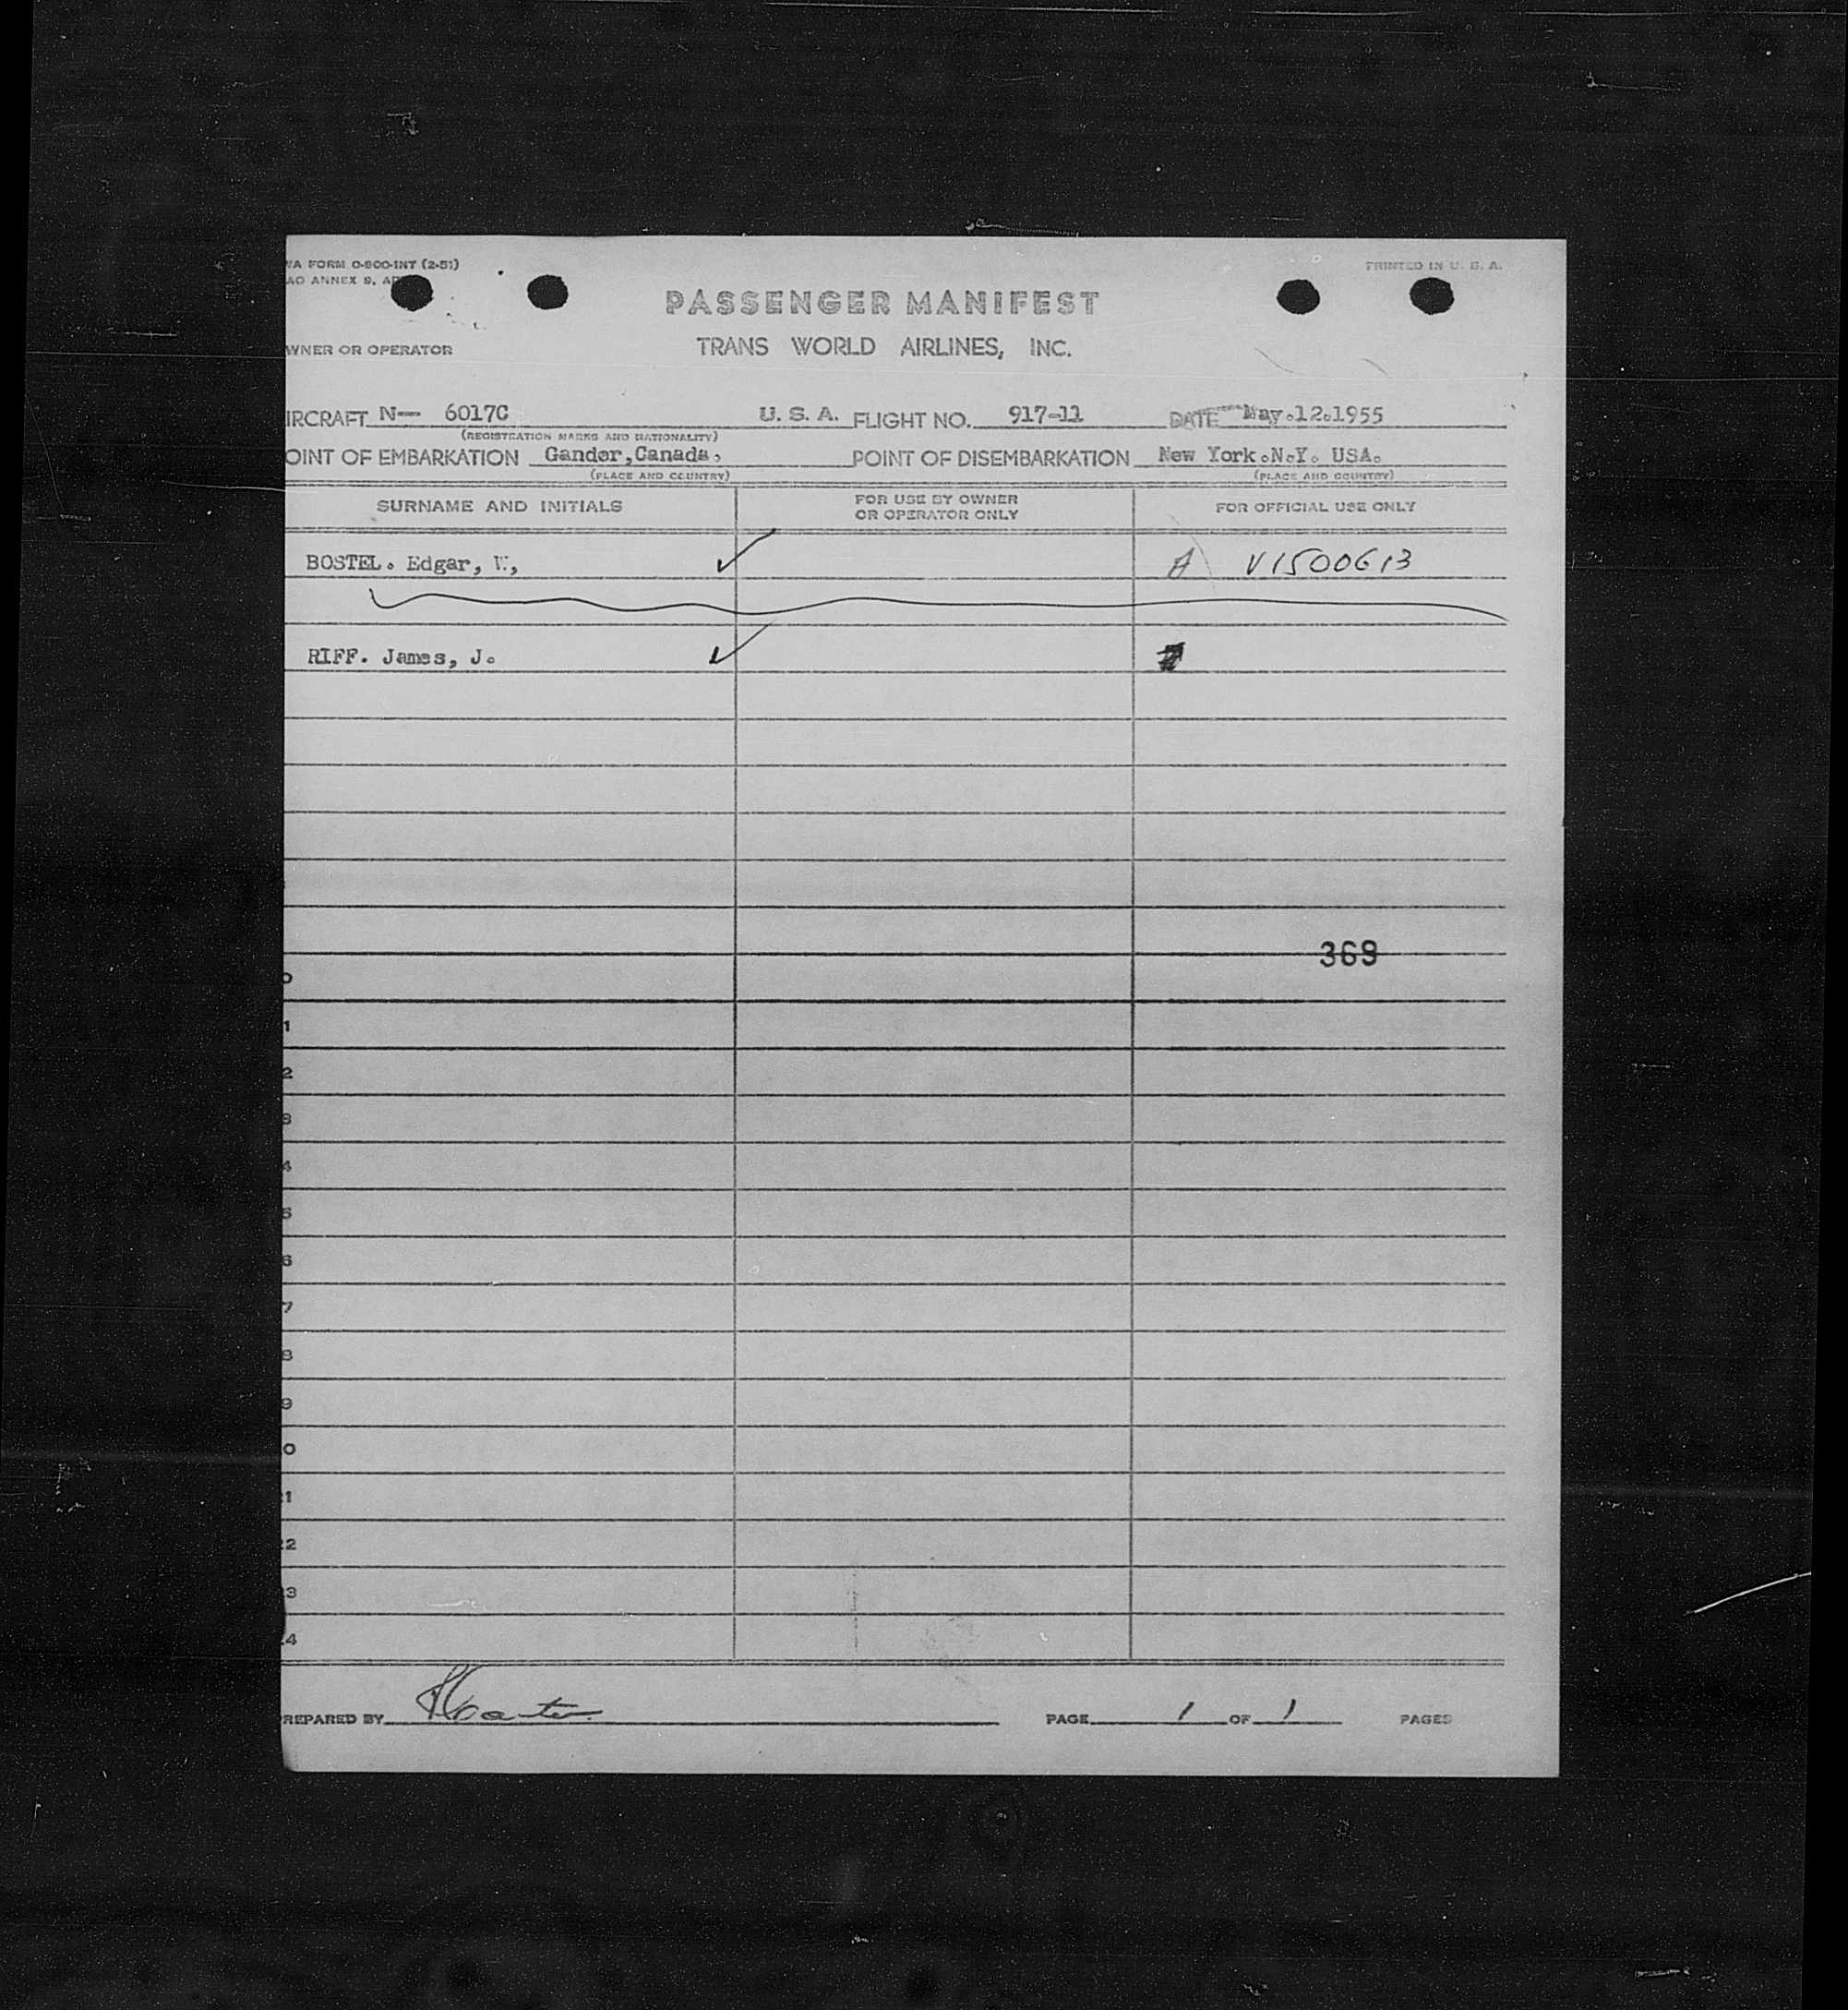 WA FORM O-800-INT (2-51)
PRINTED IN U. S. A.
AO ANNEX 9, AP
PASSENGER MANIFEST
WNER OR OPERATOR
TRANS WORLD AIRLINES, INC.
IRCRAFT N— 6017C U. S. A. FLIGHT NO. 917-11 DATE May.12.1955
(REGISTRATION MARKS AND NATIONALITY)
OINT OF EMBARKATION Gander,Canada, POINT OF DISEMBARKATION New York.N.Y. USA.
(PLACE AND COUNTRY) (PLACE AND COUNTRY)
SURNAME AND INITIALS FOR USE BY OWNER OR OPERATOR ONLY FOR OFFICIAL USE ONLY
BOSTEL. Edgar, W., A V1500613
RIFF. James, J.
369
0
1
2
3
4
5
6
7
8
9
0
21
22
23
24
REPARED BY PAGE 1 OF 1 PAGES